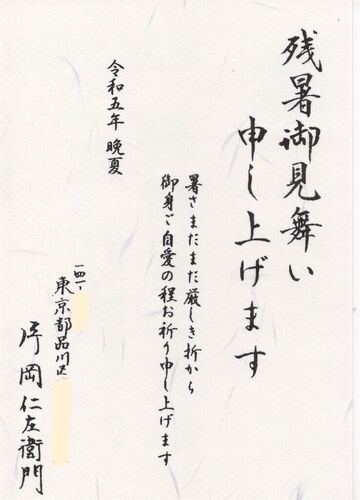 残暑御見舞い
申し上げます
暑さまだまだ厳しき折から
御身ご自愛の程お祈り申し上げます
令和五年 晩夏
一四一-
東京都品川区
片岡仁左衛門